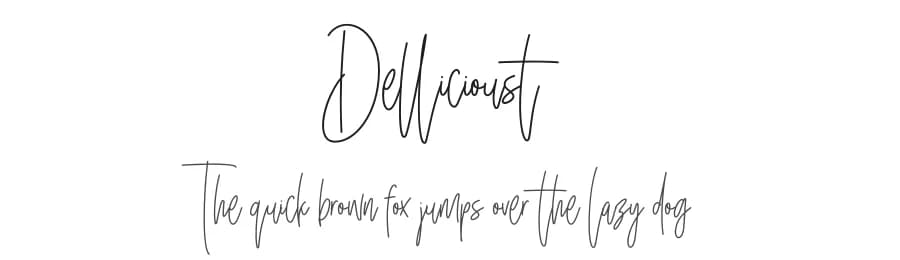 Dellicioust
The quick brown fox jumps over the lazy dog